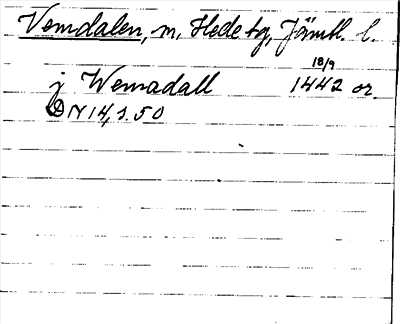 Vemdalen, sn, Hede tg, Jämtl. l.
18/9
j Wemadall 1442 or.
DN 14, s. 50